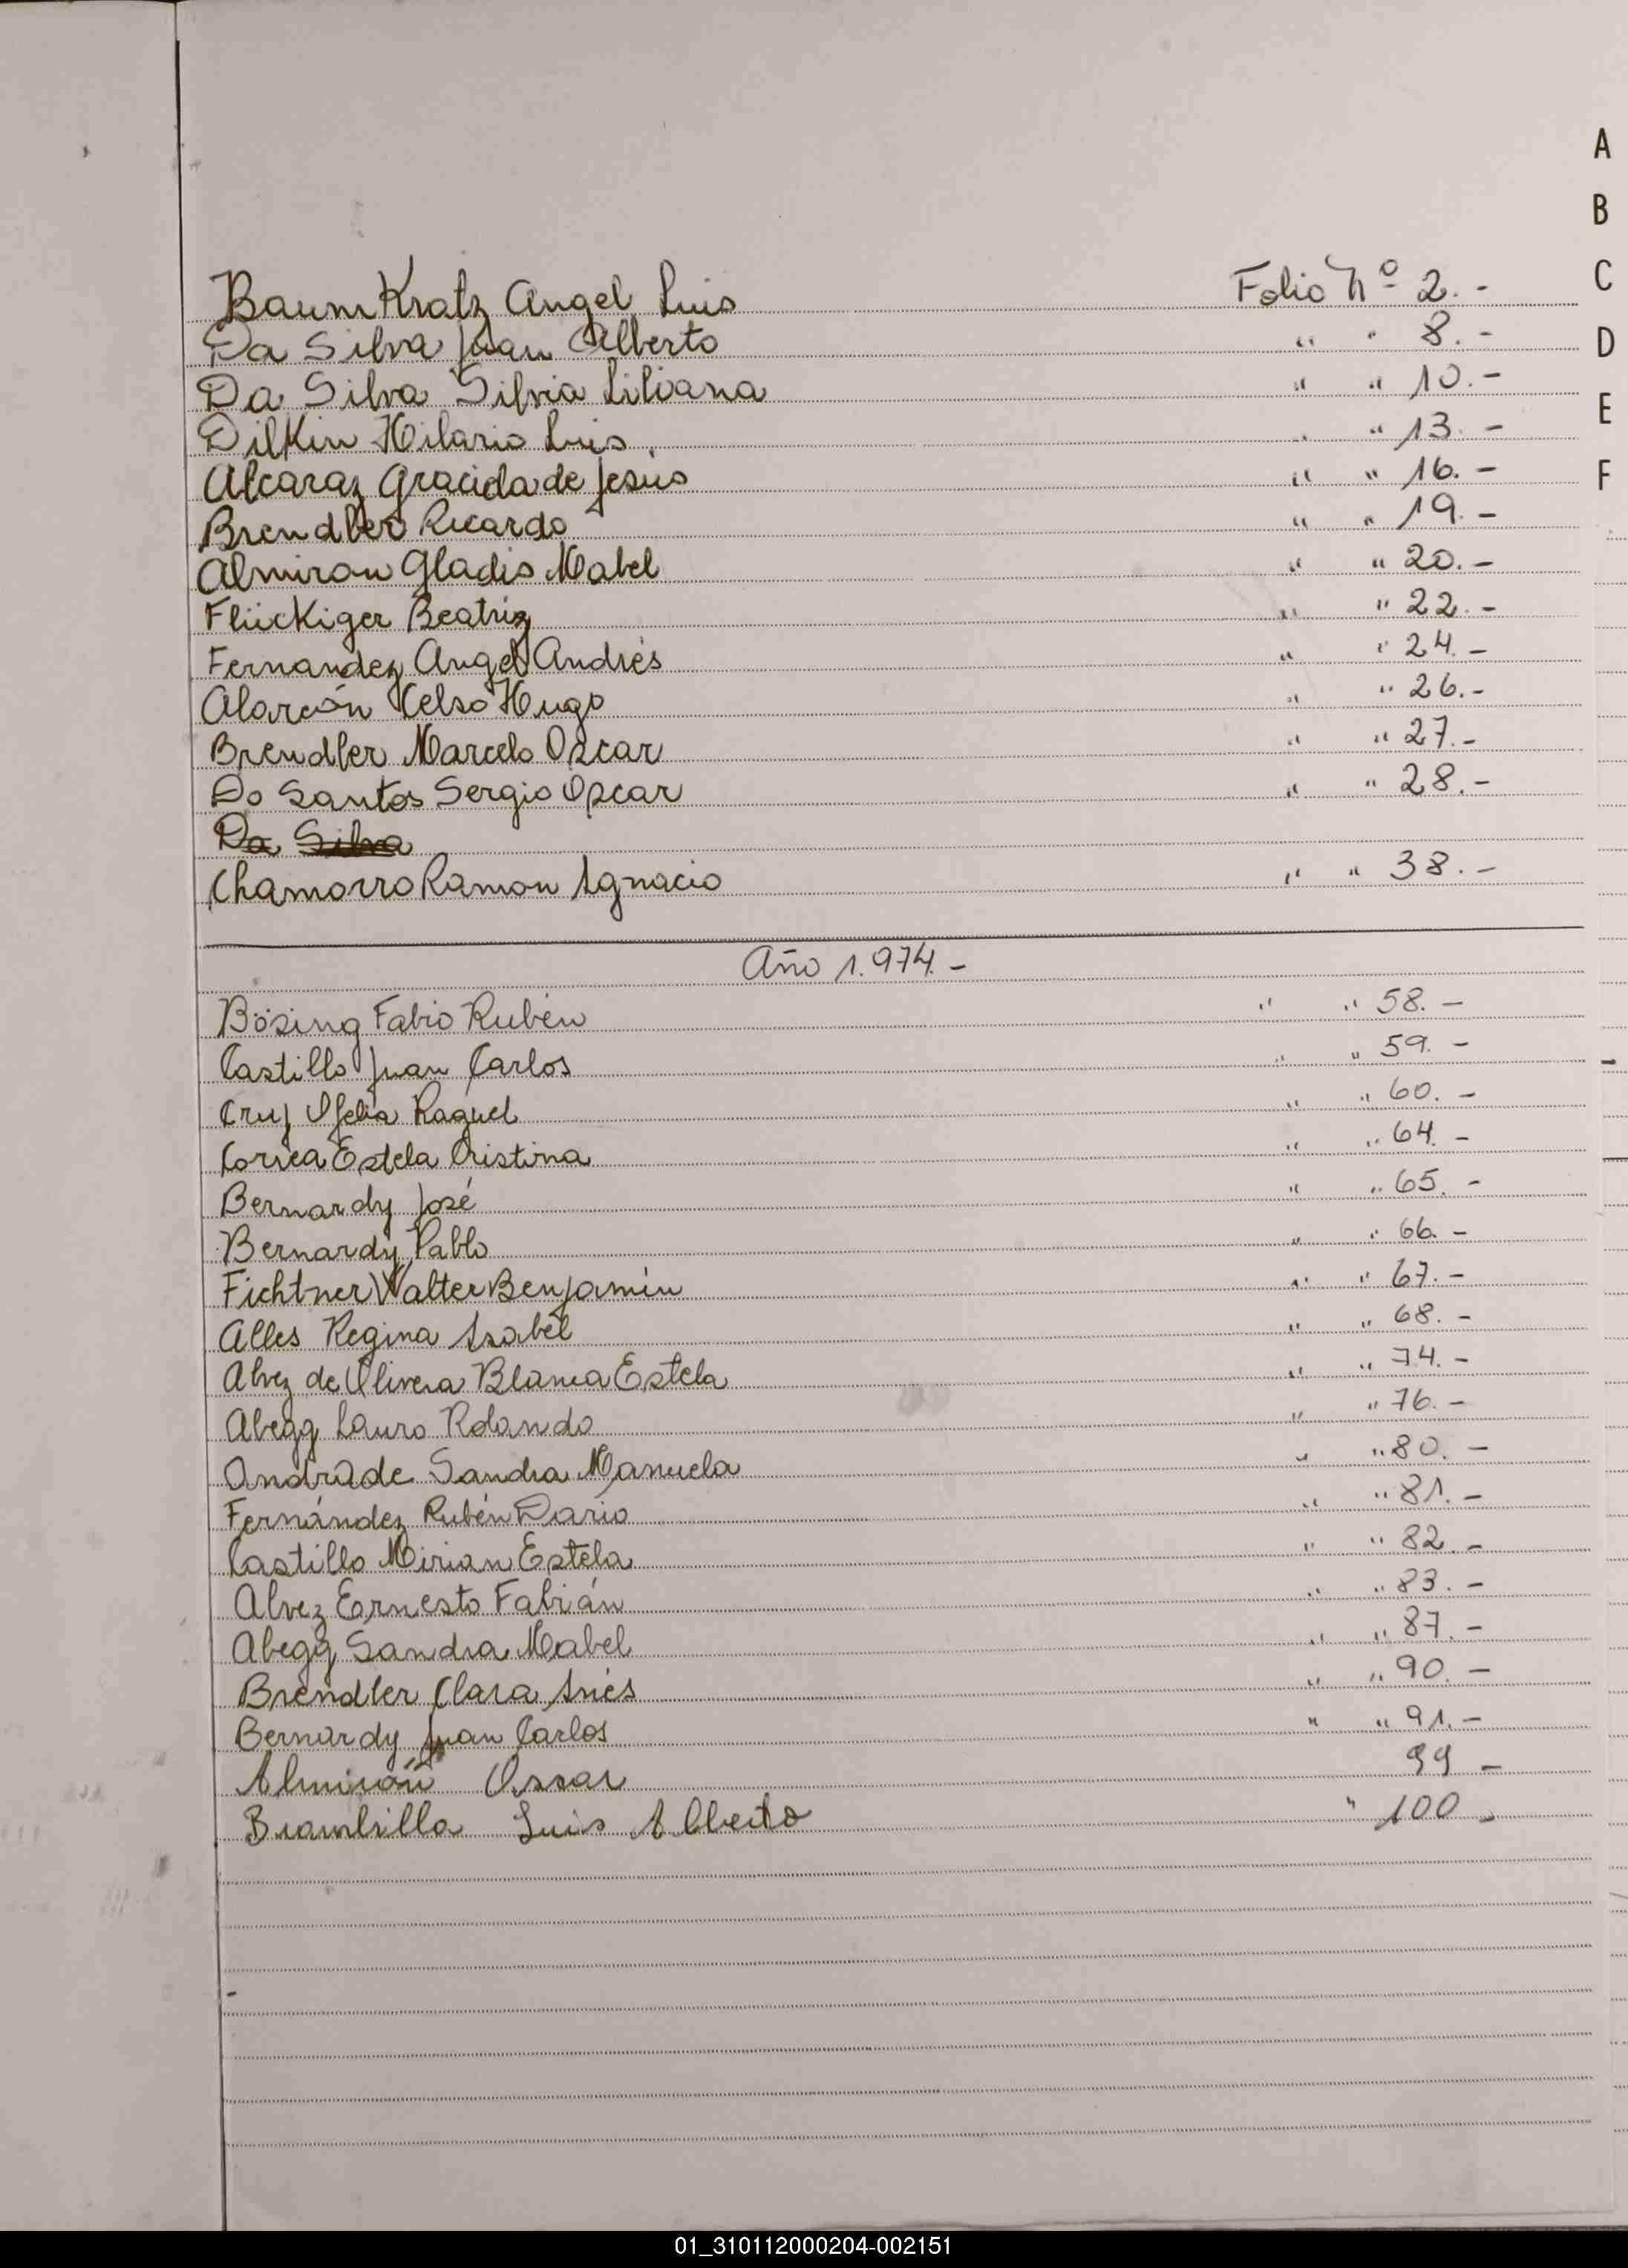 A
B
C
D
E
F
BaumKratz Angel Luis Folio Nº 2.-
Da Silva Juan Alberto " " 8.-
Da Silva Silvia Liliana " " 10.-
Dilkin Hilario Luis. " " 13.-
Alcaraz Gracida de Jesús " " 16.-
Brendler Ricardo " " 19.-
Almiron Gladis Mabel " " 20.-
Flückiger Beatriz " " 22.-
Fernandez Angel Andrés " " 24.-
Alarcón Celso Hugo " " 26.-
Brendler Marcelo Oscar " " 27.-
Do Santos Sergio Oscar " " 28.-
Da Silva
Chamorro Ramon Ignacio " " 38.-
Año 1.974.-
Bösing Fabio Rubén " " 58.-
Castillo Juan Carlos " " 59.-
Cruz Ofelia Raquel " " 60.-
Correa Estela Cristina " " 64.-
Bernardy José " " 65.-
Bernardy Pablo " " 66.-
Fichtner Walter Benjamín " " 67.-
Alles Regina Isabel " " 68.-
Alvez de Olivera Blanca Estela " " 74.-
Abegg Lauro Rolando " " 76.-
Andrade Sandra Manuela " " 80.-
Fernández Rubén Dario " " 81.-
Castillo Mirian Estela " " 82.-
Alvez Ernesto Fabián " " 83.-
Abegg Sandra Mabel " " 87.-
Brendler Clara Inés " " 90.-
Bernardy Juan Carlos " " 91.-
Almirón Ossar 99 -
Brambilla Luis Alberto " 100 -
01_310112000204-002151